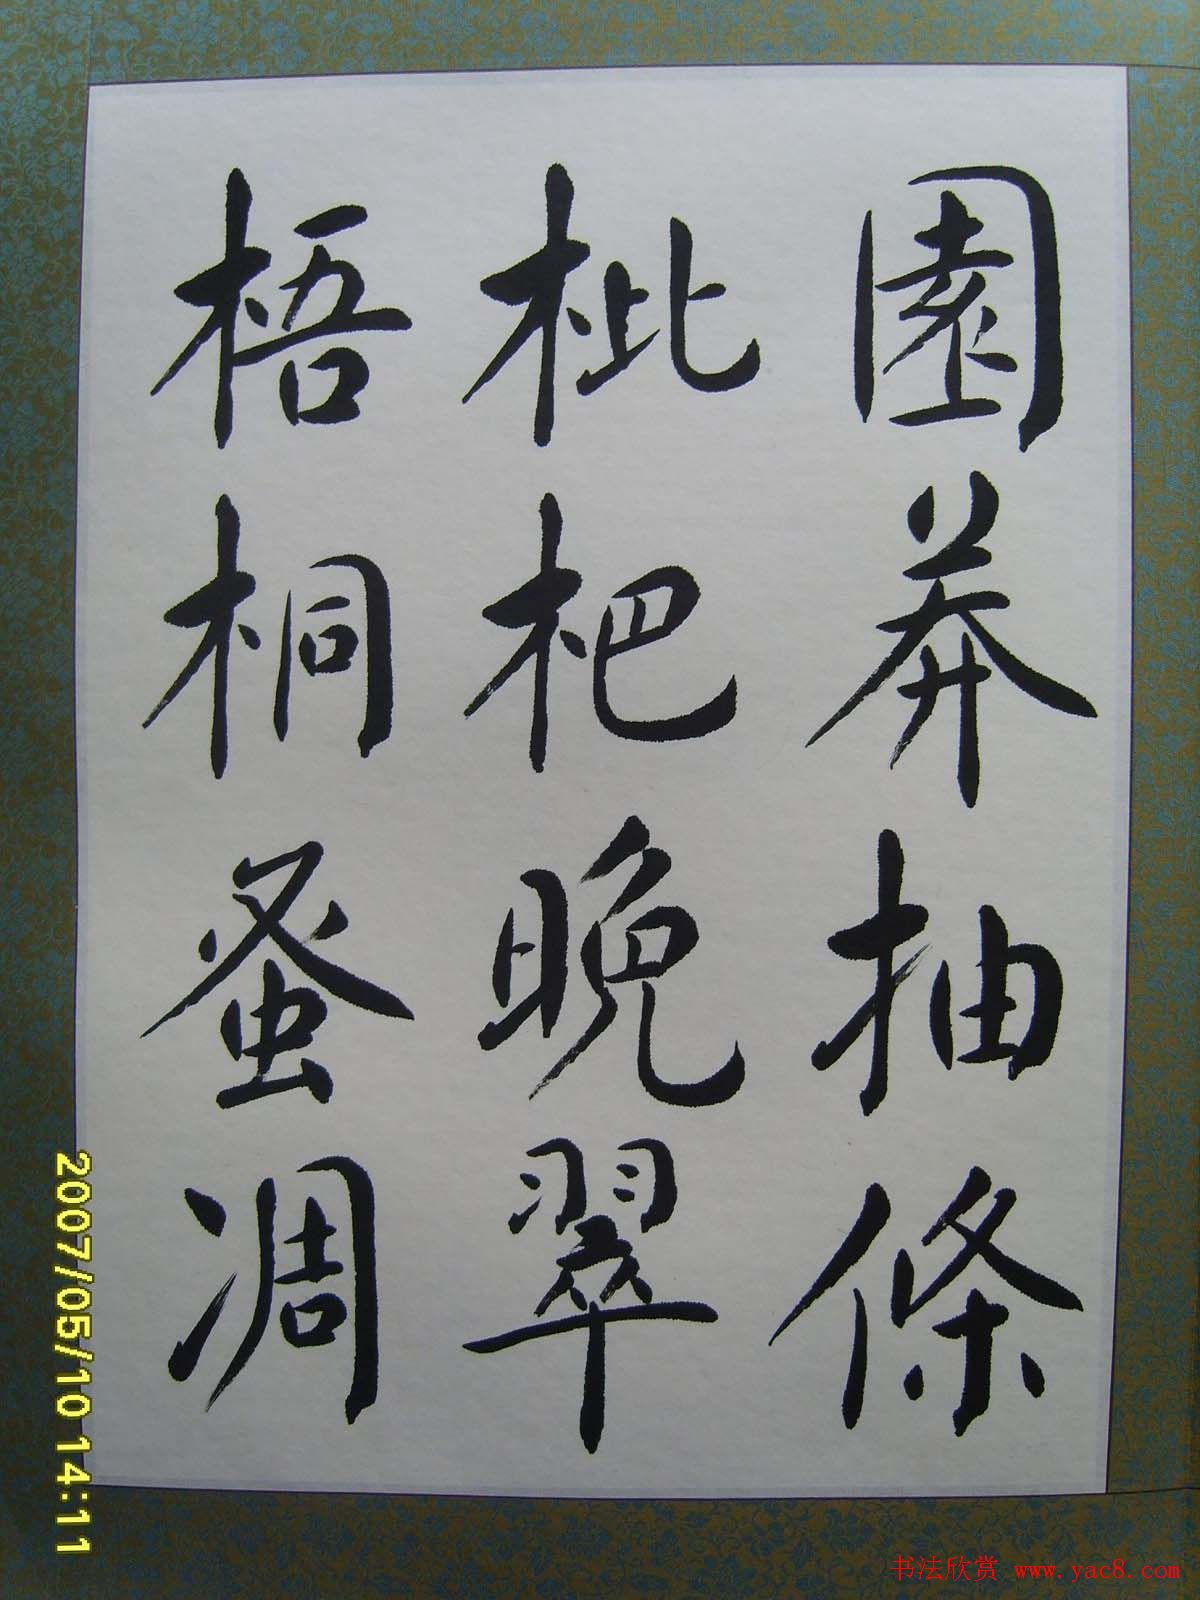 園莽抽條
枇杷晚翠
梧桐蚤凋
2007/05/10 14:11
书法欣赏 www.yac8.com